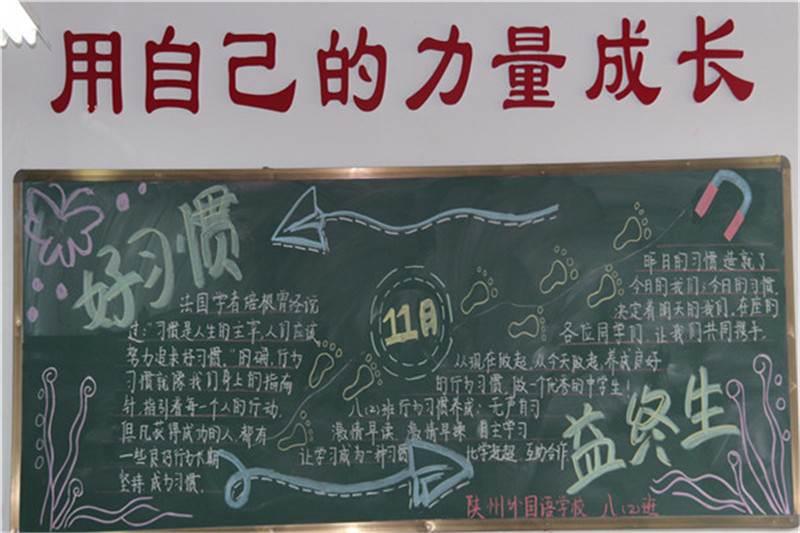 用自己的力量成长
好习惯
法国学者培根曾经说
过:"习惯是人生的主宰,人们应该
努力追求好习惯。"的确,行为
习惯就像我们身上的指南
针,指引着每一个人的行动。
但凡获得成功的人,都有
一些良好行为长期
坚持成为习惯。
11月
昨日的习惯造就了
今日的我们;今日的习惯,
决定着明天的我们,在座的
各位同学们,让我们共同携手。
从现在做起,从今天做起,养成良好
的行为习惯,做一个优秀的中学生!
八(2)班行为习惯养成:无声自习
激情早读 激情早操 自主学习
让学习成为一种习惯 比学赶超 互助合作
益终生
陕州外国语学校 八(2)班